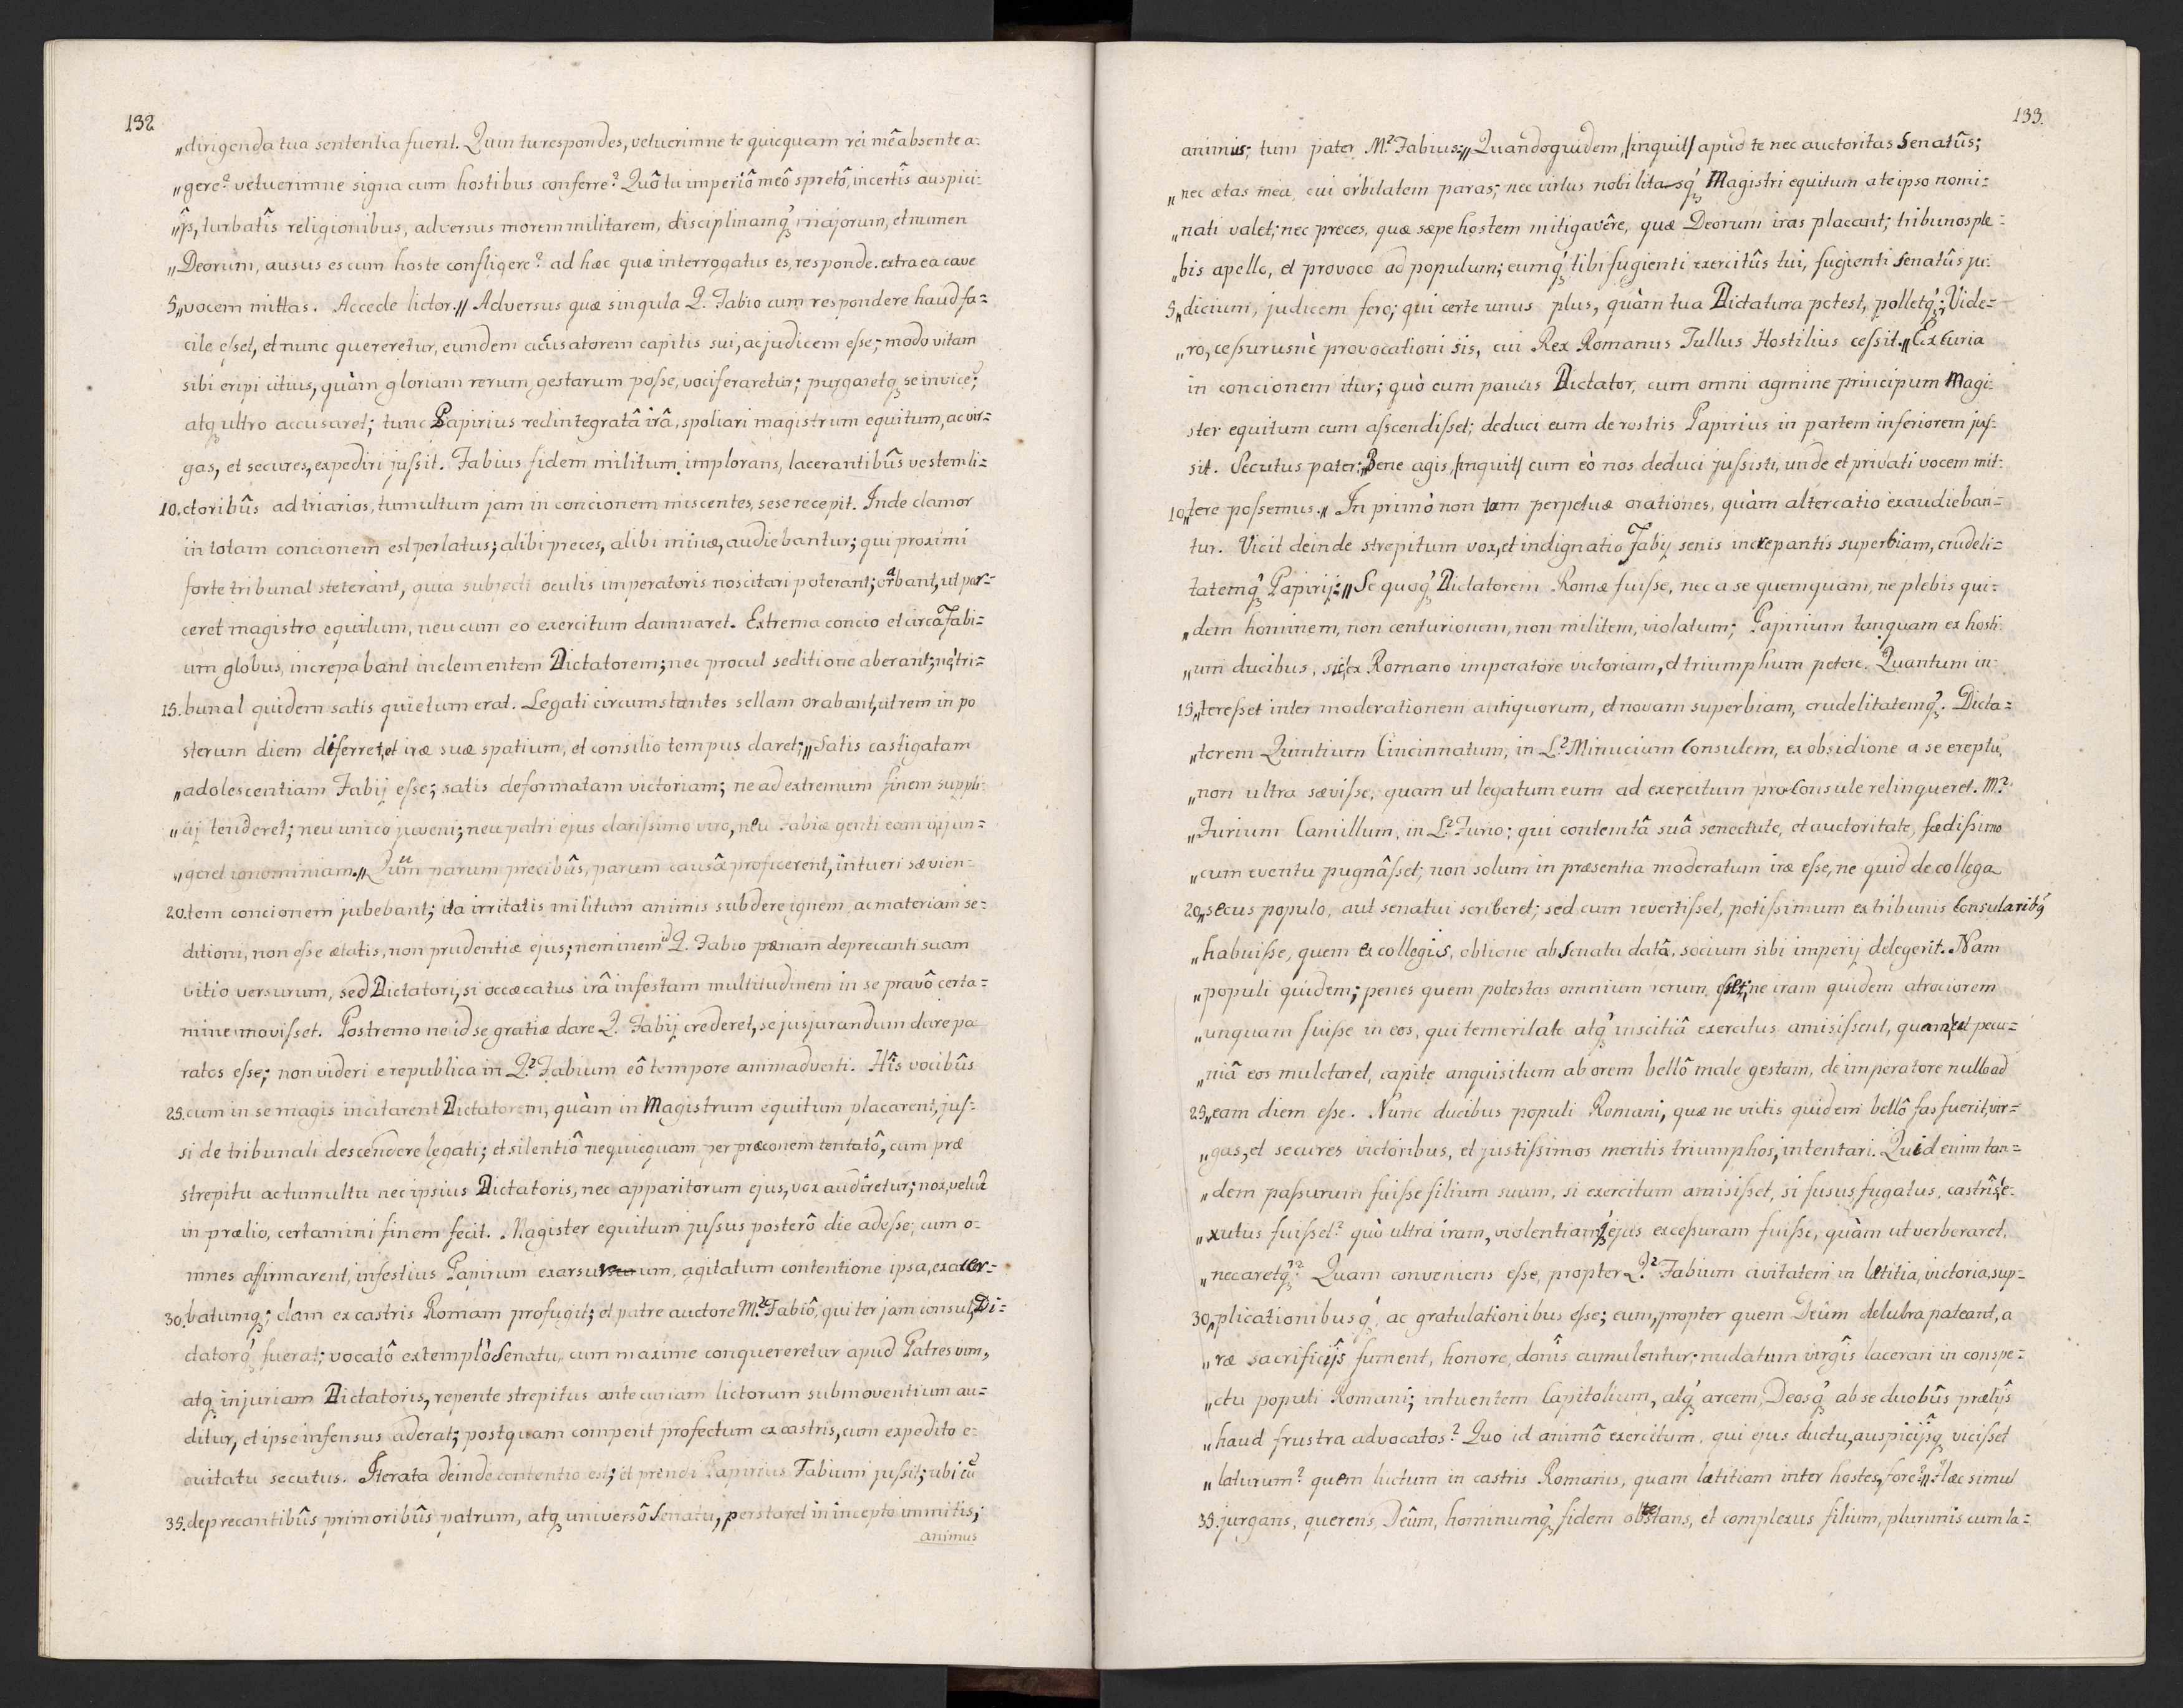 132
„dirigenda tua sententia fuerit. Quin tu respondes, vetuerimne te quicquam rei mê absente a:
„gere? vetuerimne signa cum hostibus conferre? Quô tu imperiô meô spretô, incertîs auspici:
„îjs, turbatîs religionibus, adversus morem militarem, disciplinamq́; majorum, et numen
„Deorum, ausus es cum hoste confligere? ad hæc quæ interrogatus es, responde. extra ea cave
5„vocem mittas. Accede lictor.„ Adversus quæ singula Q. Fabio cum respondere haud fa=
cile eſset, et nunc quereretur, eundem acusatorem capitis sui, ac judicem eſse; modo vitam
sibi eripi citius, quàm gloriam rerum gestarum poſse, vociferaretur; purgaretq; se invicē;
atq; ultro accusaret; tunc Papirius redintegratâ irâ, spoliari magistrum equitum, ac vir=
gas, et secures, expediri juſsit. Fabius fidem militum implorans, lacerantibûs vestem li=
10.ctoribûs ad triarios, tumultum jam in concionem miscentes, sese recepit. Inde clamor
in totam concionem est perlatus; alibi preces, alibi minæ, audiebantur; qui proximi
forte tribunal steterant, quia subjecti oculis imperatoris noscitari poterant; orabant, ut par=
ceret magistro equitum, neu cum eo exercitum damnaret. Extrema concio et circa Fabi=
um globus, increpabant inclementem Dictatorem; nec procul seditione aberant; nè tri=
15.bunal quidem satis quiëtum erat. Legati circumstantes sellam orabant, ut rem in po
sterum diem diferret, et iræ suæ spatium, et consilio tempus daret; „Satis castigatam
„adolescentiam Fabij eſse; satis deformatam victoriam; ne ad extremum finem suppli:
„cij tenderet; neu unico juveni; neu patri ejus clariſsimo viro, neu Fabiæ genti eam injun=
„geret ignominiam.„ Qüm parum precibûs, parum causâ proficerent, intueri sævien=
20.tem concionem jubebant; ita irritatis militum animis subdere ignem, ac materiam se=
ditioni, non eſse ætatis, non prudentiæ ejus; neminem id Q. Fabio pœnam deprecanti suam
vitio versurum, sed Dictatori, si occæcatus irâ infestam multitudinem in se pravô certa=
mine moviſset. Postremo ne id se gratiæ dare Q. Fabij crederet, se jusjurandum dare pa
ratos eſse; non videri e republica in Q? Fabium eô tempore animadverti. Hîs vocibûs
25.cum in se magis incitarent Dictatorem, quàm in Magistrum equitum placarent, juſ=
si de tribunali descendere legati; et silentiô nequicquam per præconem tentatô, cum præ
strepitu ac tumultu nec ipsius Dictatoris, nec apparitorum ejus, vox audiretur; nox, velut
in prælio, certamini finem fecit. Magister equitum juſsus posterô die adeſse; cum o=
mnes affirmarent, infestius Papirium exarsurum, agitatum contentione ipsa, exacer=
30.batumq; clam ex castris Romam profugit; et patre auctore M? Fabiô, qui ter jam consul, Di=
ctatorq́; fuerat; vocatô extemplò Senatu, cum maxime conquereretur apud Patres vim,
atq; injuriam Dictatoris, repente strepitus ante curiam lictorum submoventium au=
ditur, et ipse infensus aderat; postquam comperit profectum ex castris, cum expedito e=
quitatu secutus. Iterata deinde contentio est; et prendi Papirius Fabium juſsit; ubi cū
35.deprecantibûs primoribûs patrum, atq; universô Senatu, perstaret in incepto immitis;
animus
133.
animus; tum pater M? Fabius: „Quandoquidem, /inquit/ apud te nec auctoritas Senatûs;
„nec ætas mea, cui orbitatem paras; nec virtus nobilitasq́; Magistri equitum a te ipso nomi=
„nati valet; nec preces, quæ sæpe hostem mitigavêre, quæ Deorum iras placant; tribunos ple=
„bis apello, et provoco ad populum; eumq́; tibi fugienti exercitûs tui, fugienti Senatûs ju:
5„dicium, judicem fero; qui certe unus plus, quàm tua Dictatura potest, polletq́; Vide=
„ro, ceſsurusnè provocationi sis, cui Rex Romanus Tullus Hostilius ceſsit.„ Ex curia
in concionem itur; quò cum paucis Dictator, cum omni agmine principum Magi:
ster equitum cum aſscendiſset; deduci eum de rostris Papirius in partem inferiorem juſ=
sit. Secutus pater; „Bene agis, /inquit/ cum eò nos deduci juſsisti, unde et privati vocem mit:
10„tere poſsemus.„ In primò non tam perpetuæ orationes, quàm altercatio exaudieban=
tur. Vicit deinde strepitum vox, et indignatio Fabij senis increpantis superbiam, crudeli=
tatemq́; Papirij: „Se quoq́; Dictatorem Romæ fuiſse, nec a se quemquam, ne plebis qui=
„dem hominem, non centurionem, non militem, violatum; Papirium tanquam ex hosti:
„um ducibus, sic ex Romano imperatore victoriam, et triumphum petere. Quantum in=
15„tereſset inter moderationem antiquorum, et novam superbiam, crudelitatemq́; Dicta=
„torem Quintium Cincinnatum, in L? Minucium Consulem, ex obsidione a se ereptū,
„non ultra sæviſse, quam ut legatum eum ad exercitum pro Consule relinqueret. M?
„Furium Camillum, in L? Furio; qui contemtâ suâ senectute, et auctoritate, fœdiſsimo
„cum eventu pugnâſset; non solum in præsentia moderatum iræ eſse, ne quid de collega
20„secus populo, aut senatui scriberet; sed cum revertiſset, potiſsimum ex tribunis Consularibq́
„habuiſse, quem ex collegis, obtione ab Senatu datâ, socium sibi imperij delegerit. Nam
„populi quidem; penes quem potestas omnium rerum eſset; ne iram quidem atrociorem
„unquam fuiſse in eos, qui temeritate atq́; inscitiâ exercitus amisiſsent, quam, ut pecu=
„niâ eos mulctaret, capite anquisitum ab orem bellô male gestam, de imperatore nullo ad
25„eam diem eſse. Nunc ducibus populi Romani, quæ ne victis quidem bellô fas fuerit, vir=
„gas, et secures victoribus, et juſtiſsimos meritis triumphos, intentari. Quid enim tan=
„dem paſsurum fuiſse filium suum, si exercitum amisiſset, si fusus, fugatus, castrîs, e=
„xutus fuiſset? quò ultra iram, violentiamq́; ejus exceſsuram fuiſse, quàm ut verberaret,
„necaretq́;? Quam conveniens eſse, propter Q? Fabium civitatem in lætitia, victoria, sup=
30„plicationibusq́; ac gratulationibus eſse; eum, propter quem Deûm delubra pateant, a
„ræ sacrificijs fument, honore, donîs cumulentur; nudatum virgîs lacerari in conspe=
„ctu populi Romani; intuentem Capitolium, atq́; arcem, Deosq́; ab se duobûs prælijs
„haud frustra advocatos? Quo id animô exercitum, qui ejus ductu, auspicijsq; viciſset
„laturum? quem luctum in castris Romanis, quam lætitiam inter hostes, fore?„ Hæc simul
35.jurgans, querens, Deûm, hominumq́; fidem obtestans, et complexus filium, plurimis cum la=